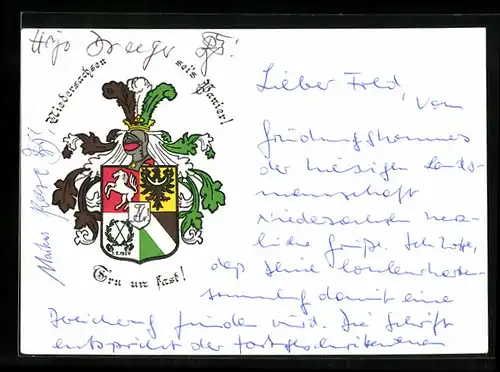 Hajo Dreeger
Niedersachsen sei's Panier!
Markus
Tru un fast!
Lieber Fred,
vom
Gründungskommers
der hiesigen Lands-
mannschaft
Niedersachsen herz-
liche Grüße. Ich hoffe,
daß Deine Couleurkarten-
sammlung damit eine
Zeichnung finden wird. Die Schrift
entspricht der fortgeschrittenen